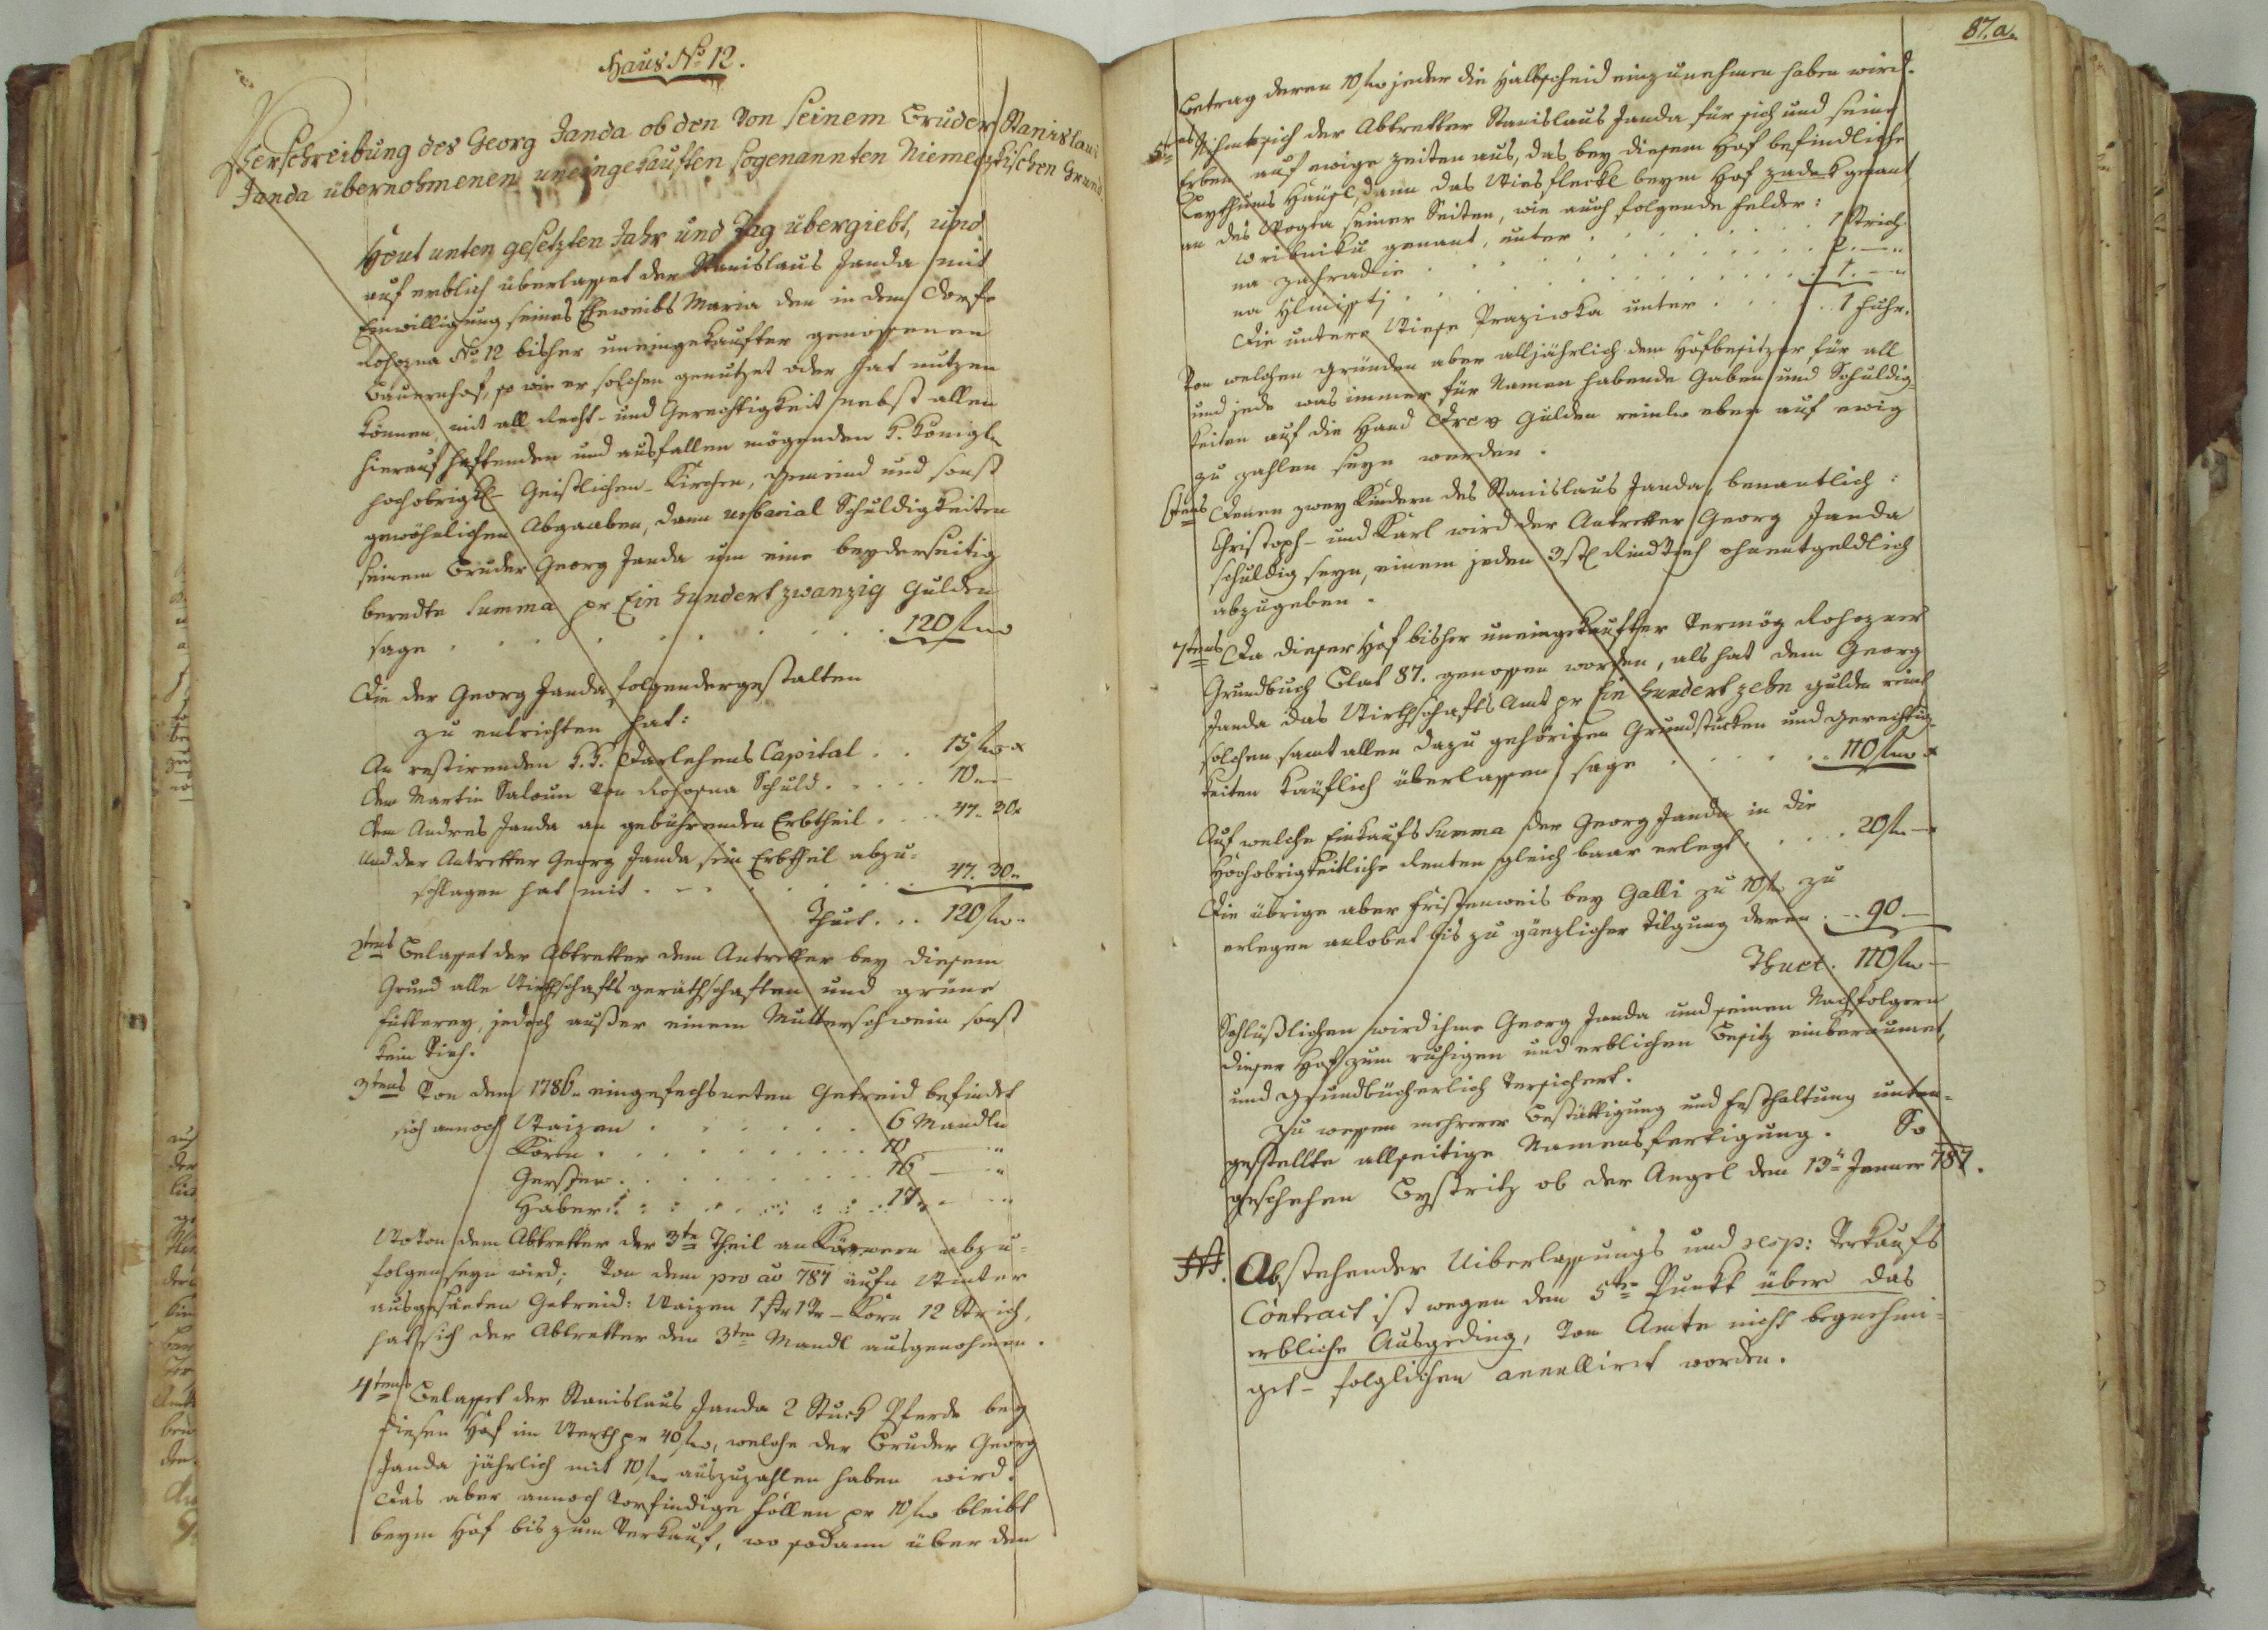 Haus No 12.
Verschreibung des Georg Janda ob den von seinem Bruder Stanislaus
Janda übernohmenen uneingekauften sogenannten Niemeczkischen Grund
Heut unten gesetzten Jahr und Tag übergiebt, und
auf erblich überlasset der Stanislaus Janda mit
Einwilligung seines Eheweibs Maria den in dem Dorfe
Rohozna No 12 bisher uneingekaufter genossenen
Bauernhof, so wie er solchen genutzet oder hat nutzen
können, mit all Recht- und Gerechtigkeit nebst allen
hierauf haftenden und ausfallen mögenden K. Königl.
hochobrigkl- Geistlichen- Kirchen, Gemeind und sonst
gewöhnlichen Abgaaben, dann urbarial Schuldigkeiten
seinem Bruder Georg Janda um eine beyderseitig
beredte Summa pr Ein hundert zwanzig Gulden
sage . . . . . . . . 120 f
Die der Georg Janda folgendergestalten
zu entrichten hat:
An restirenden K.K. Darlehens Capital . . 15 f
Dem Martin Saloun von Rohozna Schuld . . . . 10 -
Dem Andres Janda an gebührenden Erbtheil . . . 47. 30
Und der Antretter Georg Janda sein Erbtheil abzu-
schlagen hat mit . . . . . . 47. 30
Thuet . . . 120 f
2tens Belasset der Abtretter dem Antretter bey diesem
Grund alle Wirthschafts geräthschaften und grüne
fütterey, jedoch außer einem Mutterschwein sonst
kein Vieh.
3tens Von dem 1786 eingefechsneten Getreid befindet
sich annoch Waizen . . . . . . 6 Mandln
Korn . . . . . . . . . 10 — "
Gersten . . . . . . . . . 16 — "
Haber . . . . . . . . . 17 — "
Wovon dem Abtretter der 3te Theil an Körnern abzu-
folgen seyn wird; Von dem pro ao 787 aufn Winter
ausgesäeten Getreid: Waizen 1 str 1 Vr - Korn 12 Strich,
hat sich der Abtretter den 3ten Mandl ausgenohmen.
4tens Belasset der Stanislaus Janda 2 Stuck Pferde bey
diesen Hof im Werth pr 40 f, welche der Bruder Georg
Janda jährlich mit 10 f auszuzahlen haben wird.
Das aber annoch vorfindige föllen pr 10 f bleibt
beym Hof bis zum Verkauf, wo sodann über den
87.a.
Betrag deren 10 f jeder die Halbscheid einzunehmen haben wird.
5tens Nihmt sich der Abtretter Stanislaus Janda für sich und seine
Erben auf ewige zeiten aus, das bey diesem Hof befindliche
Häusl, dann das Wiesfleckl beym Hof zadek genant,
an des Wogta seiner Seiten, wie auch folgende felder:
w ribniku genant, unter . . . . . . 1 Strich
na zahradie . . . . . . . . . 2. — "
na Hliništj . . . . . . . . . 1. — "
Die untere Wiese Praziwka unter . . . . . 1 fuhr.
Von welchen gründen aber alljährlich dem Hofbesitzer für all
und jede was immer für Namen habende Gaben und Schuldig-
keiten auf die Hand Drey Gulden reinl. eben auf ewig
zu zahlen seyn werden.
6tens Denen zwey Kindern des Stanislaus Janda, benantlich:
Christoph- und Karl wird der Antretter Georg Janda
schuldig seyn, einem jeden 3 stl RindVieh ohnentgeldlich
abzugeben.
7tens Da dieser Hof bisher uneingekaufter vermög Rohozner
Grundbuch Blat 87. genossen worden, als hat dem Georg
Janda das Wirthschafts Amt pr Ein hundert zehn gulden reinl
solchen samt allen dazu gehörigen Grundstücken und Gerechtig-
keiten käuflich überlassen, sage . . . . . . 110 f
Auf welche Einkaufs Summa der Georg Janda in die
Hochobrigkeitliche Renten gleich baar erlegt . . . . 20 f
Die übrige aber fristenweis bey Galli zu 10 f zu
erlegen anlobet bis zu gänzlicher tilgung deren . . . 90 —
Thuet . 110 f
Schlüßlichen wird ihme Georg Janda und seinen Nachfolgern
dieser Hof zum ruhigen und erblichen Besitz einberaumet,
und grundbücherlich versichert.
Zu wessen mehrerer Bestättigung und festhaltung unten-
gestellte allseitige Namensfertigung. So
geschehen Bystritz ob der Angel den 13ten Jenner 787.
Abstehender Uiberlassungs und resp: Verkaufs
Contract ist wegen dem 5ten Punkt über das
erbliche Ausgeding, vom Amte nicht begnehmi-
get- folglichen annullirt worden.